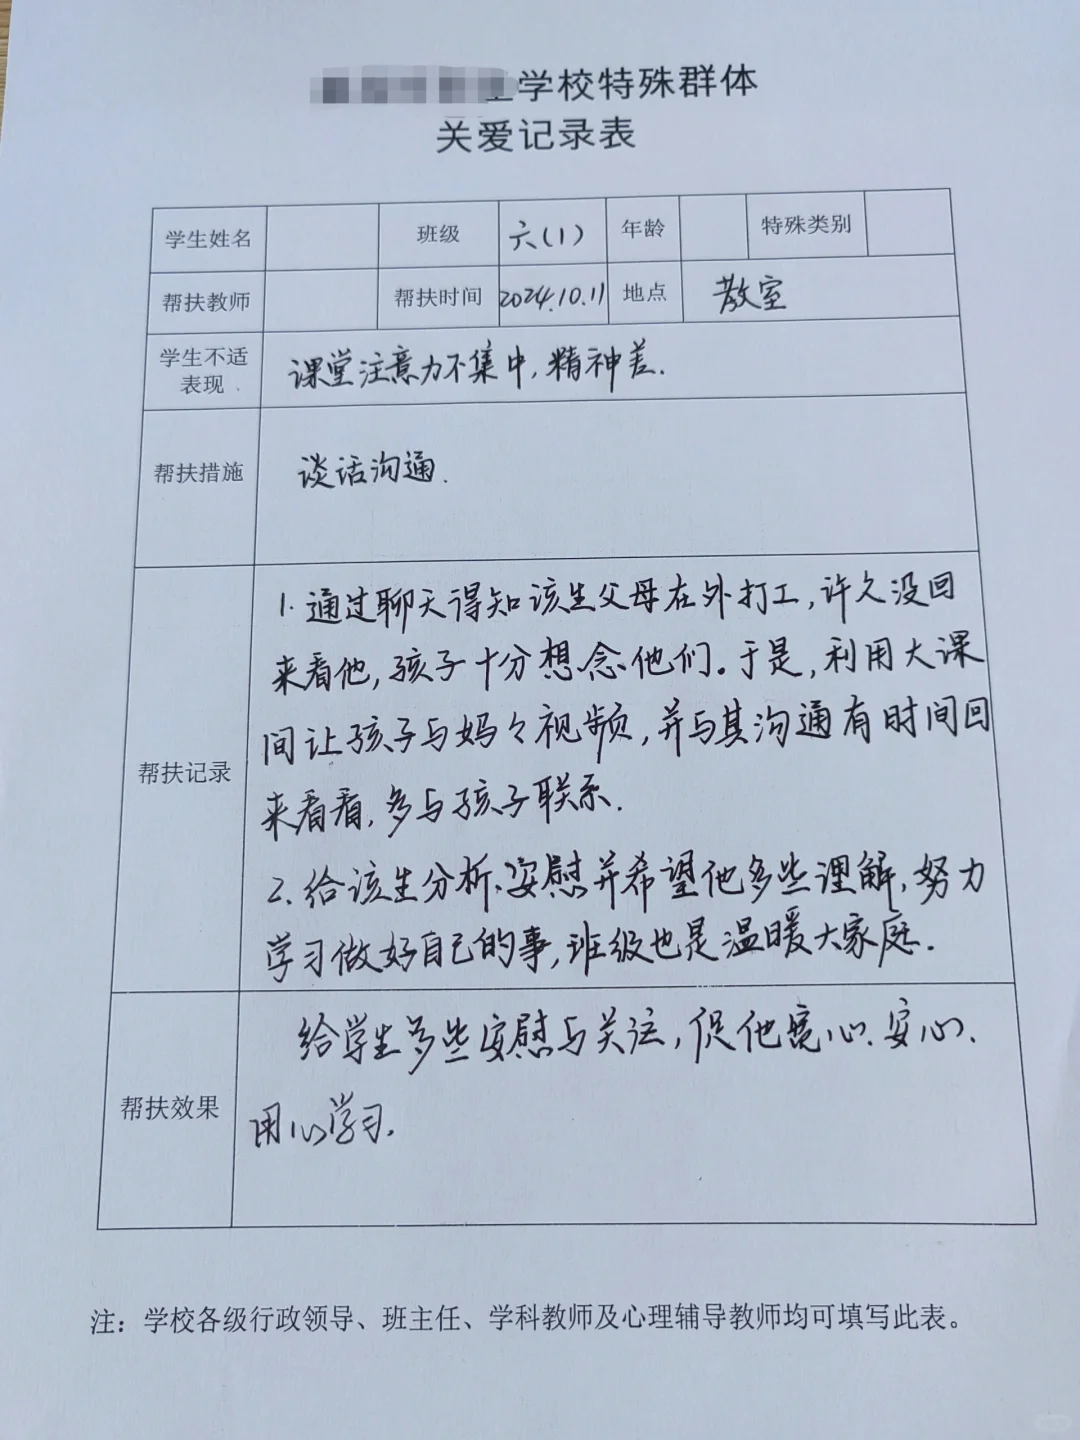 学校特殊群体
关爱记录表
学生姓名 班级 六(1) 年龄 特殊类别
帮扶教师 帮扶时间 2024.10.11 地点 教室
学生不适
表现
课堂注意力不集中,精神差.
帮扶措施
谈话沟通.
帮扶记录
1.通过聊天得知该生父母在外打工,许久没回
来看他,孩子十分想念他们。于是,利用大课
间让孩子与妈々视频,并与其沟通有时间回
来看看,多与孩子联系.
2.给该生分析、安慰并希望他多些理解,努力
学习做好自己的事,班级也是温暖大家庭.
帮扶效果
给学生多些安慰与关注,促他宽心、安心、
用心学习.
注：学校各级行政领导、班主任、学科教师及心理辅导教师均可填写此表。